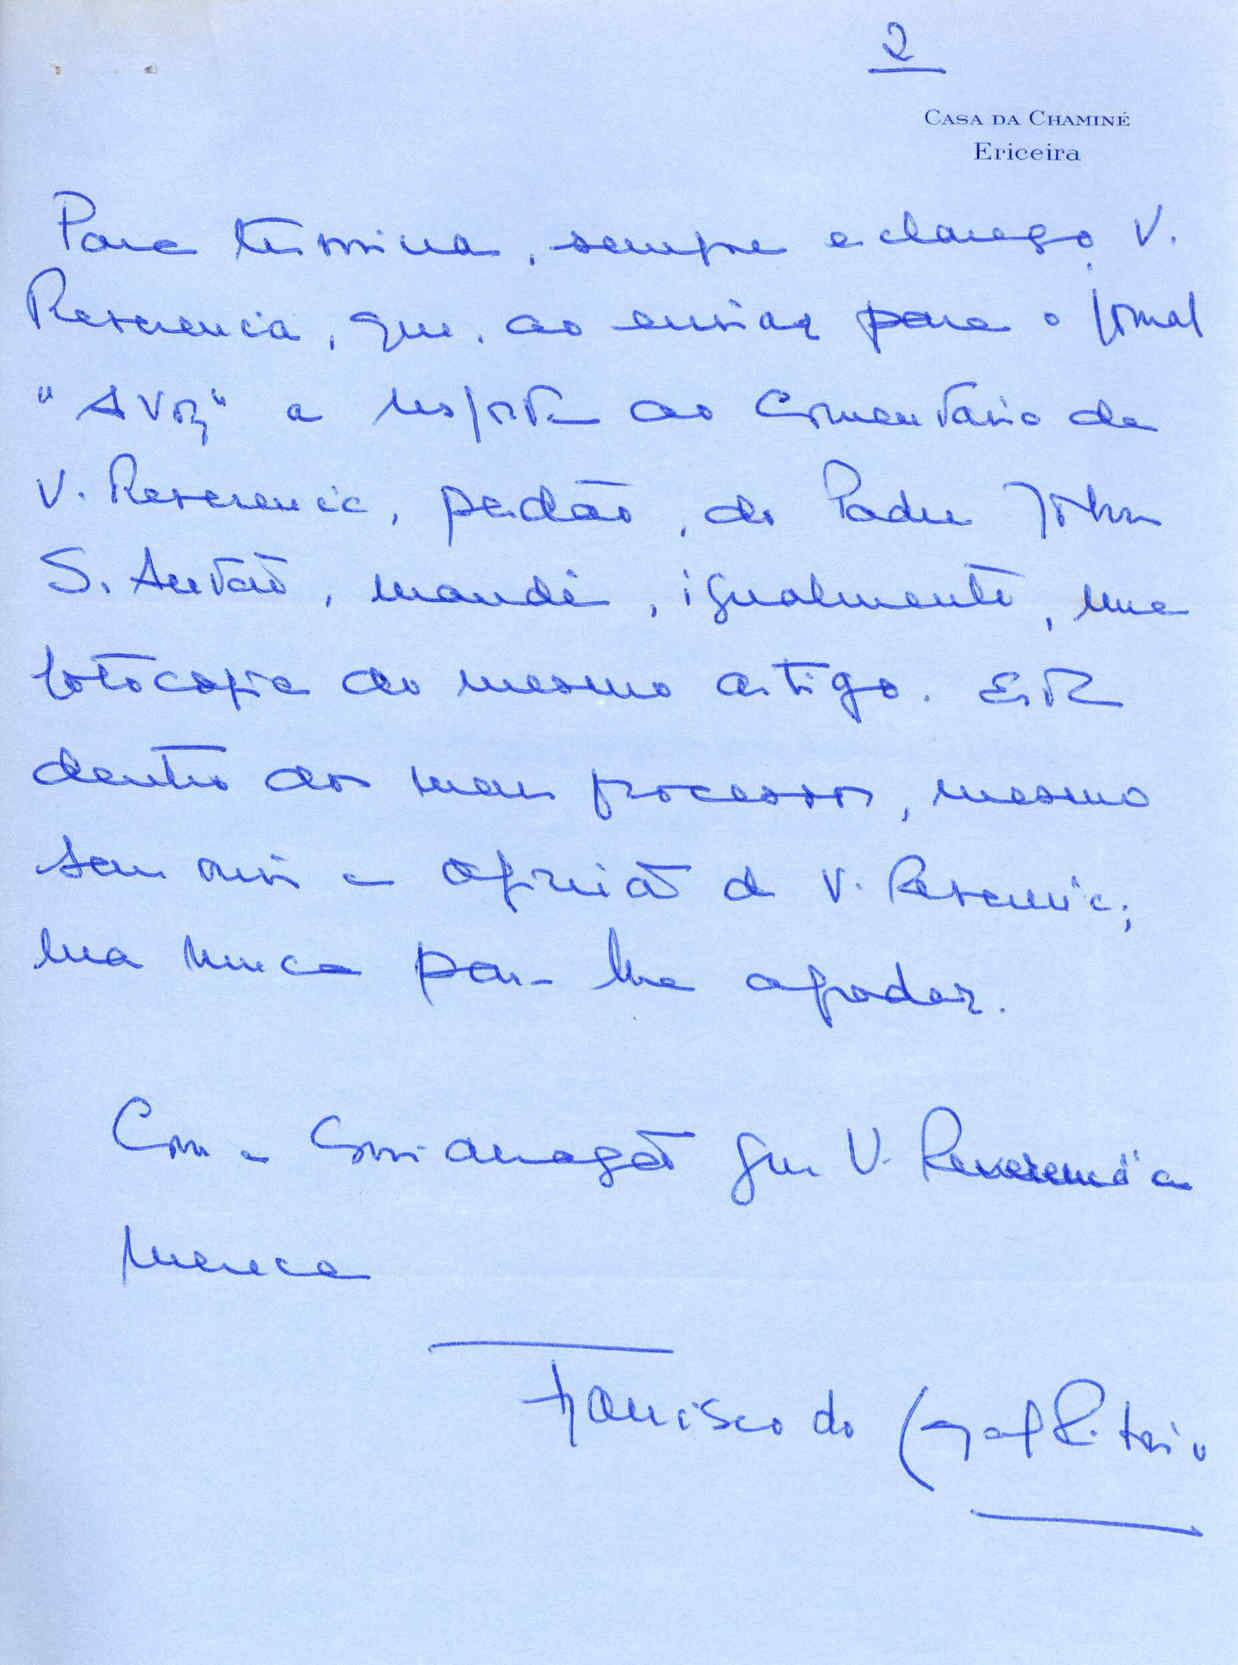 2
CASA DA CHAMINÉ
Ericeira
Para terminar, sempre esclareço V.
Reverencia, que, ao enviar para o jornal
"A Voz" a resposta ao Comentário de
V. Reverencia, perdão, do Padre John
S. Antão, mandei, igualmente, uma
fotocopia do mesmo artigo. Está
dentro dos meus processos, mesmo
sem ouvir a opinião de V. Reverencia;
mas nunca para lhe agradar.
Com a consideração que V. Reverencia
mereça
Francisco do Ribeiro